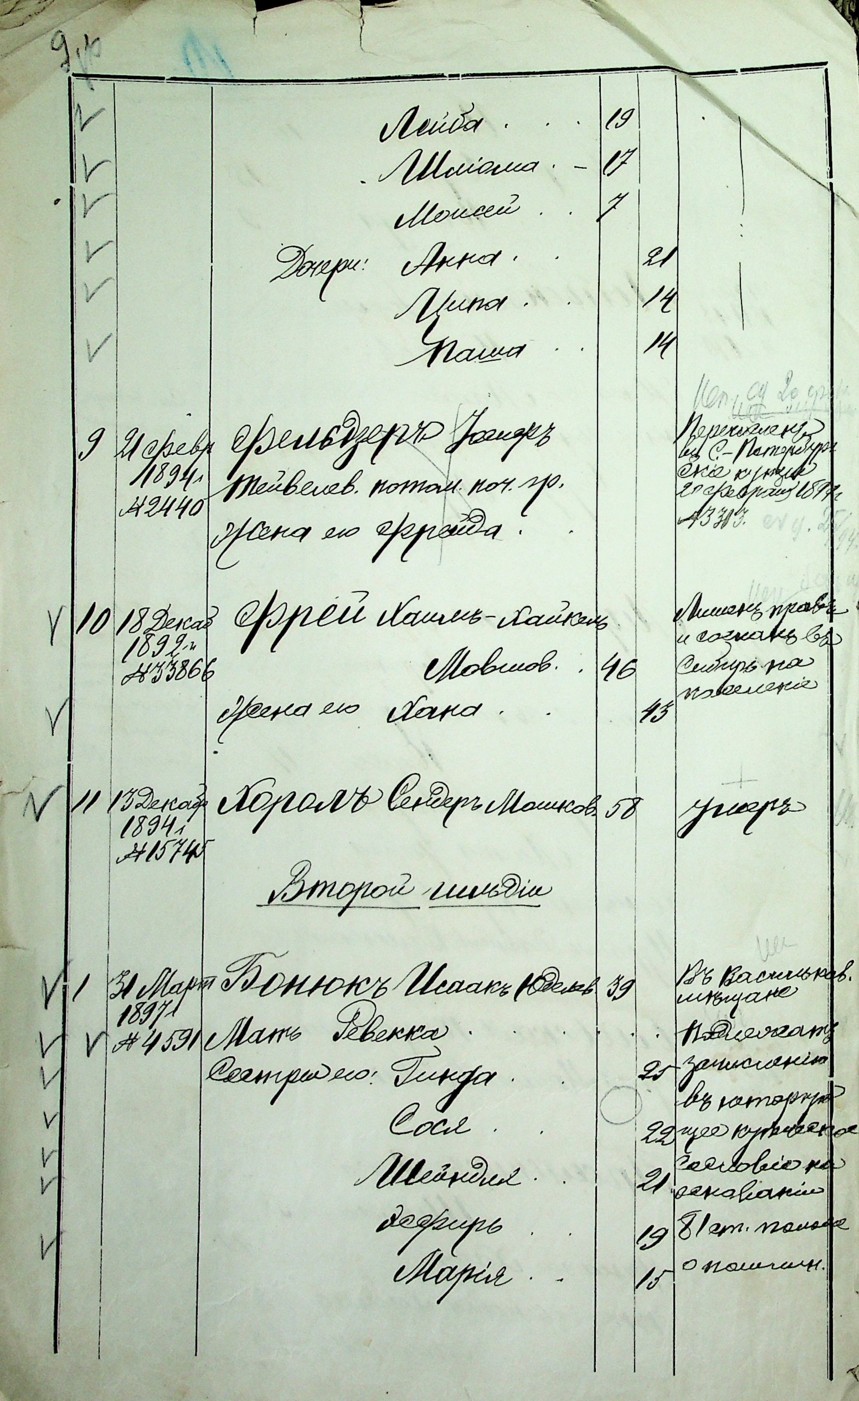 Лейба . . . 19
Шліома . - 17
Моисей . . 7
Дочери: Анна . . 21
Ципа . . 14
Паша . . 14
9 21 Февр Фельдзеръ
1894 г.
№ 2440
Тейвелев. потом. поч. гр.
Жена его Фрейда . .
Перечисленъ
въ С-Петербург
ское купеч.
№ 3313.
10 18 Декаб Фрей Хаимъ-Хайкель
1892 г.
№ 33866
Мовшов. . 46
Жена его Хана . . 43
Лишенъ правъ
и сосланъ въ
Сибирь на
поселеніе
11 13 Декабр Хоролъ Сендеръ Мошков. 58 умеръ
1894 г.
№ 15745
Второй гильдіи
1 31 Март Бонюкъ Исаакъ Юделев. 39
1897 г.
№ 4591 Мать Ревекка . . . . .
Сестры его: Гинда . . 25
Сося . . 22
Шейндля . . 21
Эсфирь . . 19
Марія . . 15
Въ Васильков.
мѣщане
Подлежатъ
зачисленію
въ которую
сословіе на
основаніи
81 ст. полож
о пошлин.